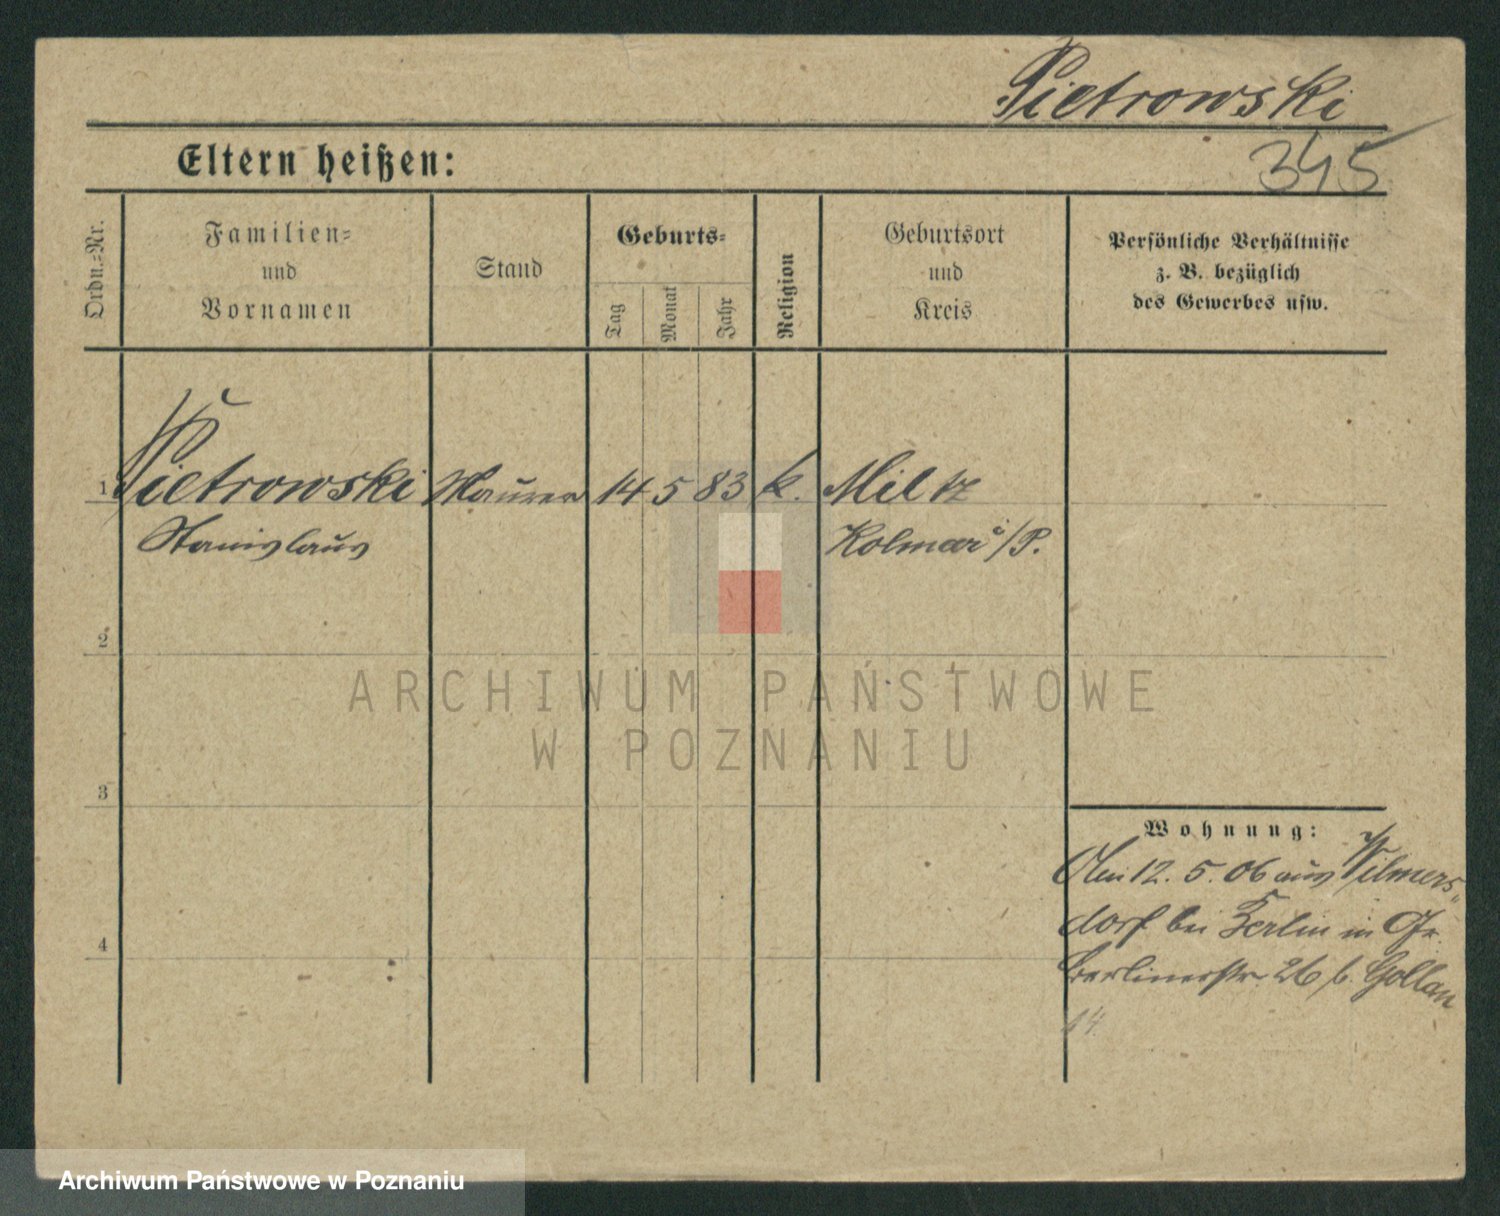 Pietrowski
345
Eltern heißen:
Ordn.-Nr.
Familien-
und
Vornamen
Stand
Geburts-
Tag
Monat
Jahr
Religion
Geburtsort
und
Kreis
Persönliche Verhältnisse
z. B. bezüglich
des Gewerbes usw.
1 Pietrowski Maurer 14 5 83 k.
Stanislaus
Kolmar i/P.
2
ARCHIWUM PAŃSTWOWE
W POZNANIU
3
Wohnung:
12. 5. 06 aus Wilmers-
dorf bei Berlin in
Berlinerstr. 26 b. Gollan
4
14.
Archiwum Państwowe w Poznaniu